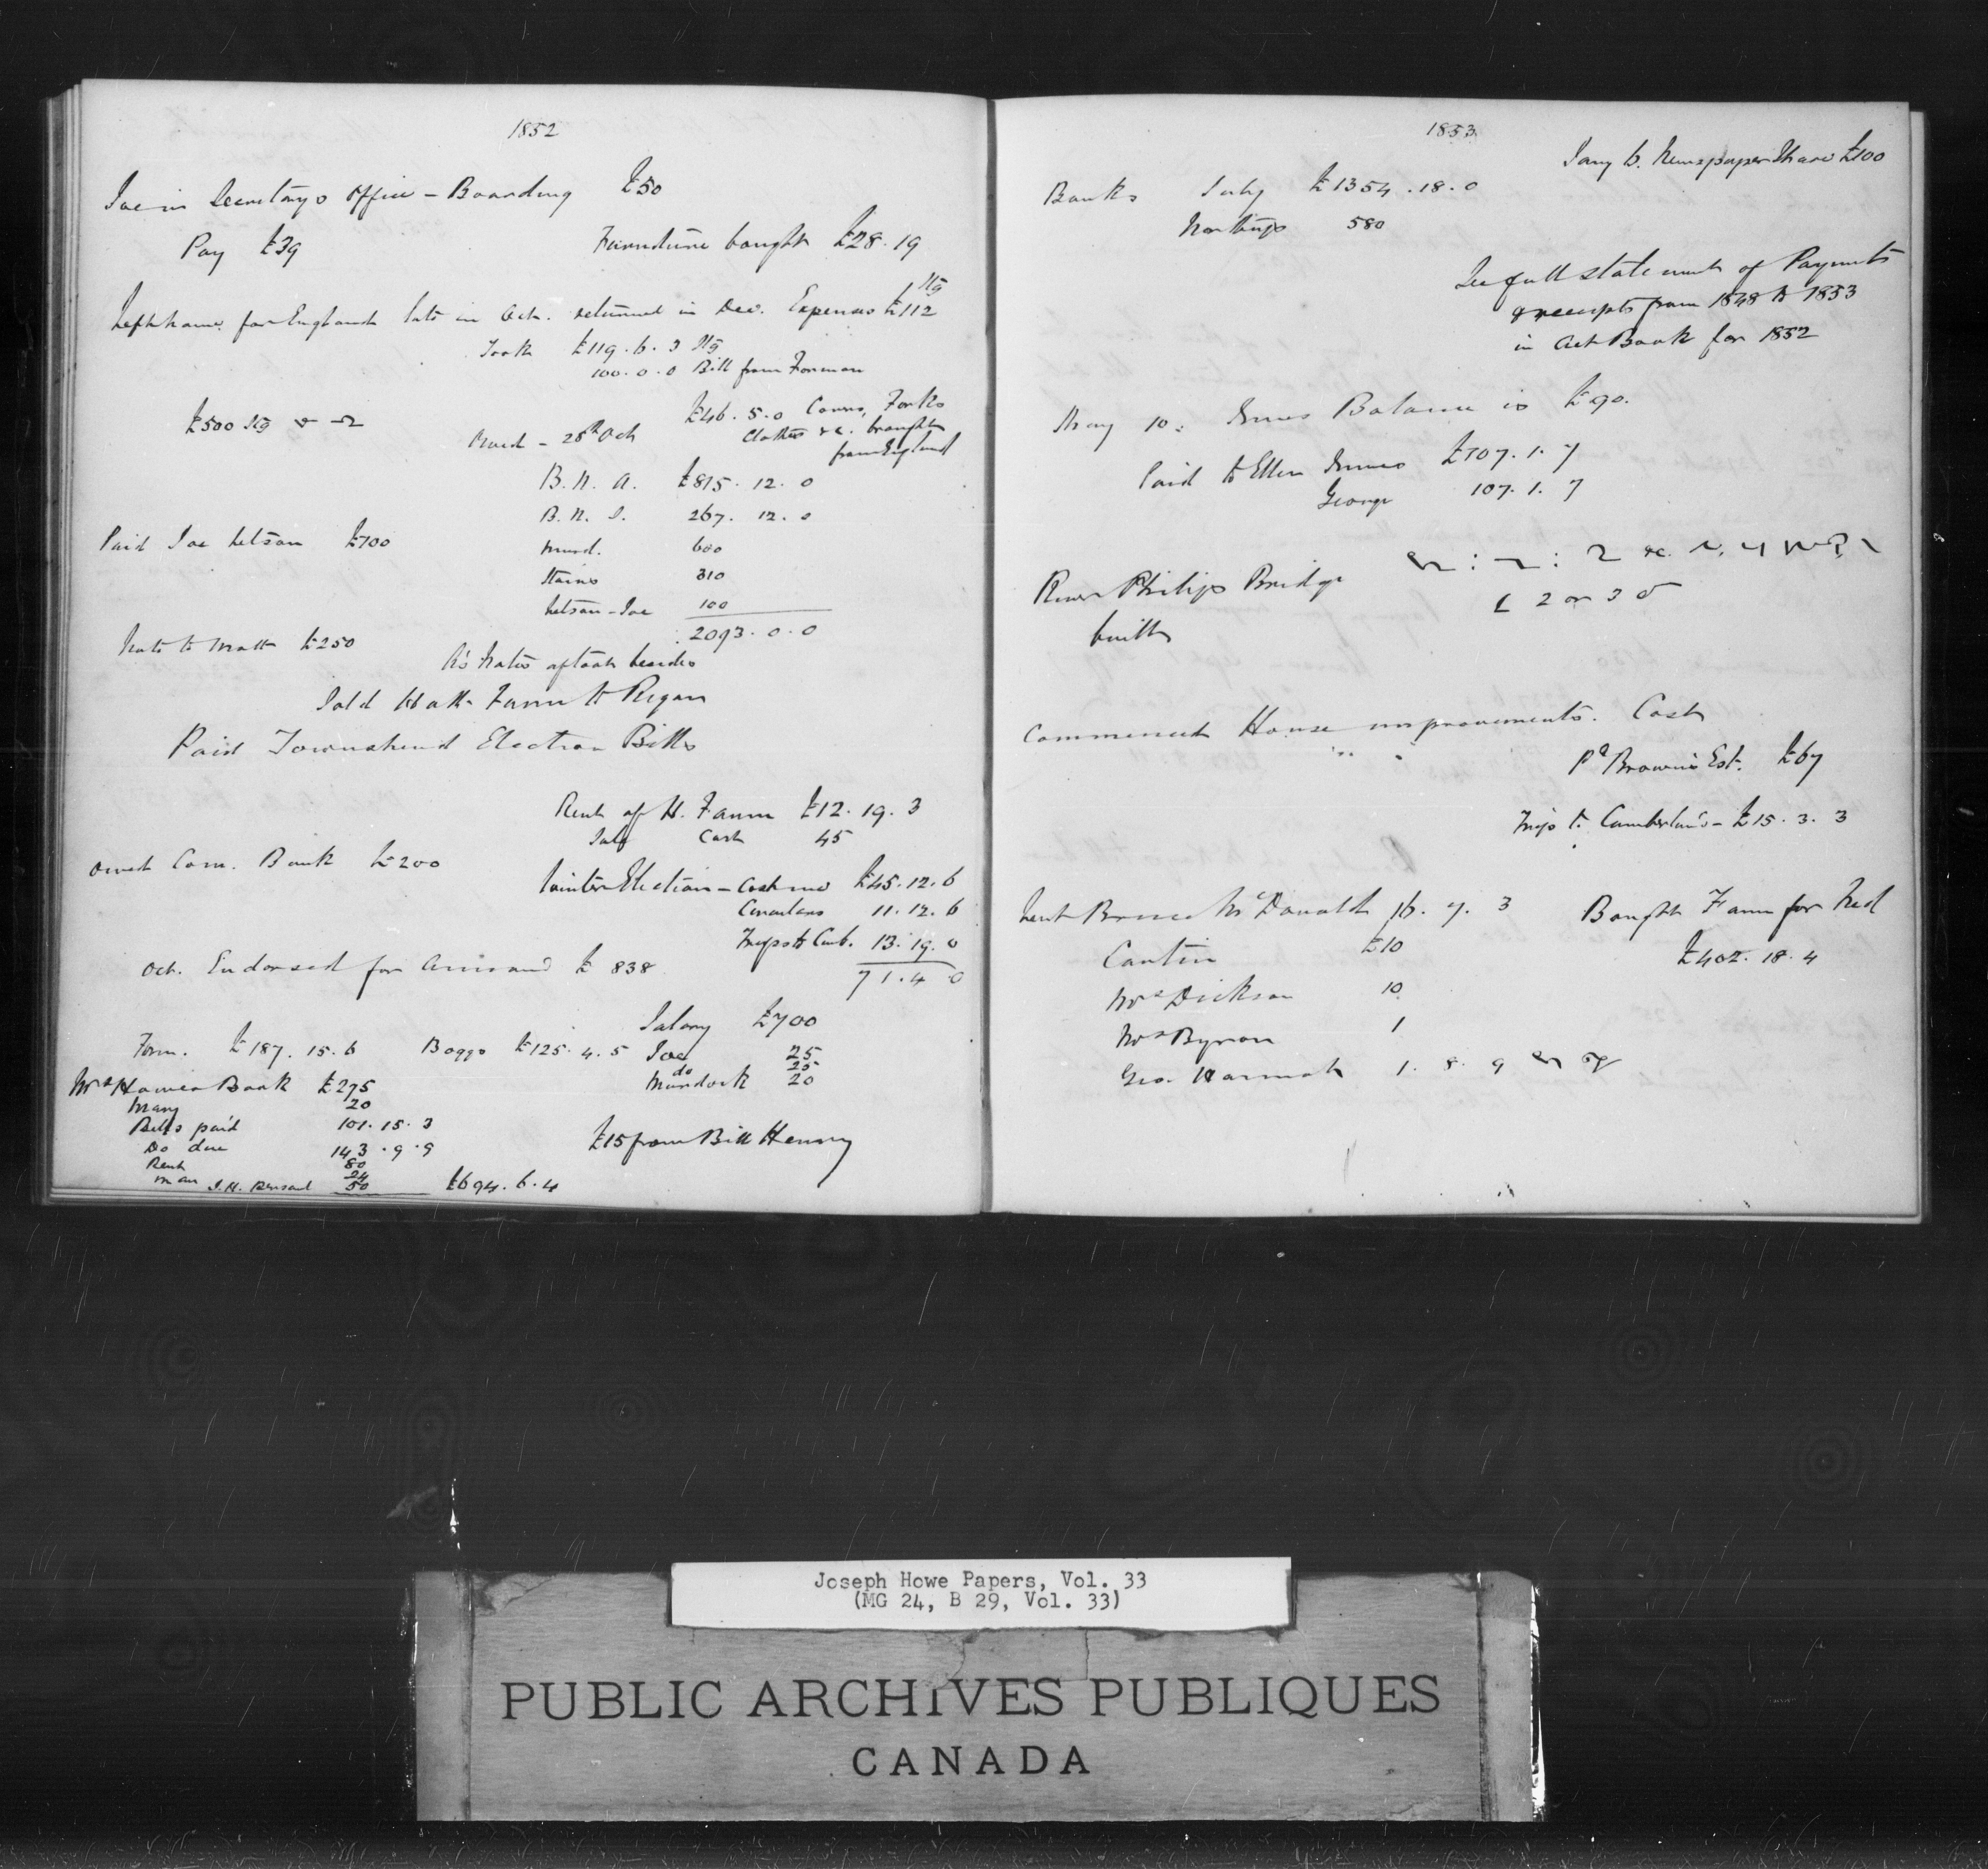 1852
Joe in Secretary's Office – Boarding £50
Pay £39 Furniture bought £28.19
Left home for England late in Oct. returned in Dec. Expenses £112 Stg
Took £119.6.3 Stg
100.0.0 Bill from Forman
£500 Stg
£46.5.0 Forks
Clothes &c. brought
from England
Owed – 28th Oct
B. N. A. £815.12.0
B. N. S. 267.12.0
Paid Joe £100
Murd. 600
Stairs 310
Joe 100
2093.0.0
Note to Matt £250
besides
Sold Hatt. Farm to Regan
Paid Townshend Election Bills
Rent of H. Farm £12.19.3
Sale Cash 45
Owed Com. Bank £200
Winter Election – Cost me £45.12.6
Circulars 11.12.6
Trips to Cumb. 13.19.0
71.4.0
Oct. Endorsed for Annand £838
Salary £700
Form. £187.15.6 Boggs £125.4.5 Joe 25
do 25
Mrs Howes Book £275 Murdock 20
Mary 20
Bills paid 101.15.3
Do due 143.9.9
£15 from Bill Henry
Rent 80
Man 24
50 £694.6.4
1853
Jany 6. Newspaper Share £100
Banks July £1354.18.0
580
See full statement of Payments
& receipts from 1848 to 1853
in Act Book for 1852
May 10: Innes Balance is £90.
Paid to Ellen Innes £107.1.7
George 107.1.7
River Philip Bridge
2 or 3
built
Commenced House improvements. Cost
Pd Brown's Est. £67
Trips to Cumberland – £15.3.3
Lent Bruce McDonald 16.7.3 Bought Farm for Ned
£10 £402.18.4
Mrs Dickson 10
Mrs Byron 1
Geo. 1.8.9
Joseph Howe Papers, Vol. 33
(MG 24, B 29, Vol. 33)
PUBLIC ARCHIVES PUBLIQUES
CANADA